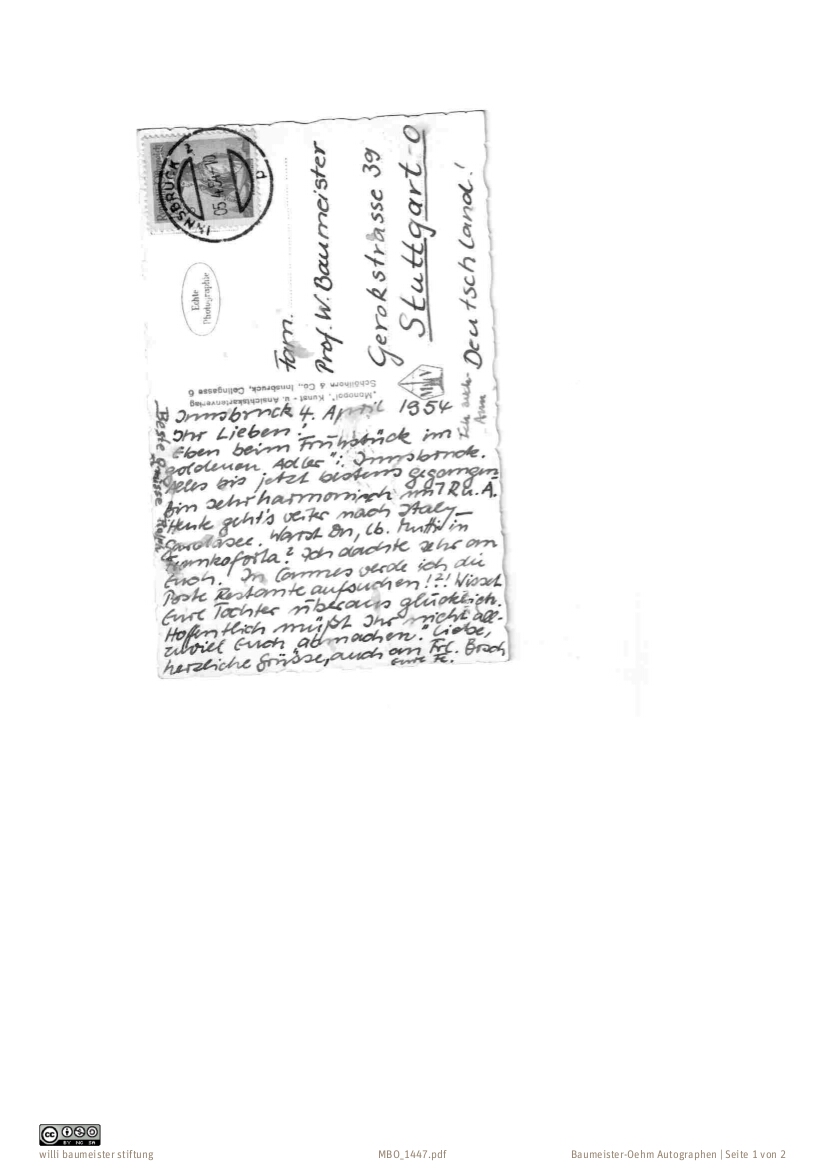 INNSBRUCK 2
05.4.54-1
d
Echte
Photographie
Fam.
Prof. W. Baumeister
Gerokstrasse 39
Stuttgart-O
Deutschland!
"Monopol", Kunst- u. Ansichtskartenverlag
Schöllhorn & Co., Innsbruck, Colingasse 6
Innsbruck 4. April 1954
Ihr Lieben!
Eben beim Frühstück im
"goldenen Adler" i. Innsbruck.
Alles bis jetzt bestens gegangen
bin sehr harmonisch mit R u. A.
Heute geht's weiter nach Italy –
Gardasee. Warst Du, lb. Mutti in
? Ich dachte sehr an
Euch. In Cannes werde ich die
Poste Restante aufsuchen!?! Wisset
Eure Tochter überaus glücklich.
Hoffentlich müßt Ihr nicht all-
zuviel Euch abmachen. Liebe,
herzliche Grüsse, auch an Frl. Bosch
Eure Fe.
Beste Grüsse
Ich auch
CC BY NC SA
willi baumeister stiftung
MBO_1447.pdf
Baumeister-Oehm Autographen | Seite 1 von 2